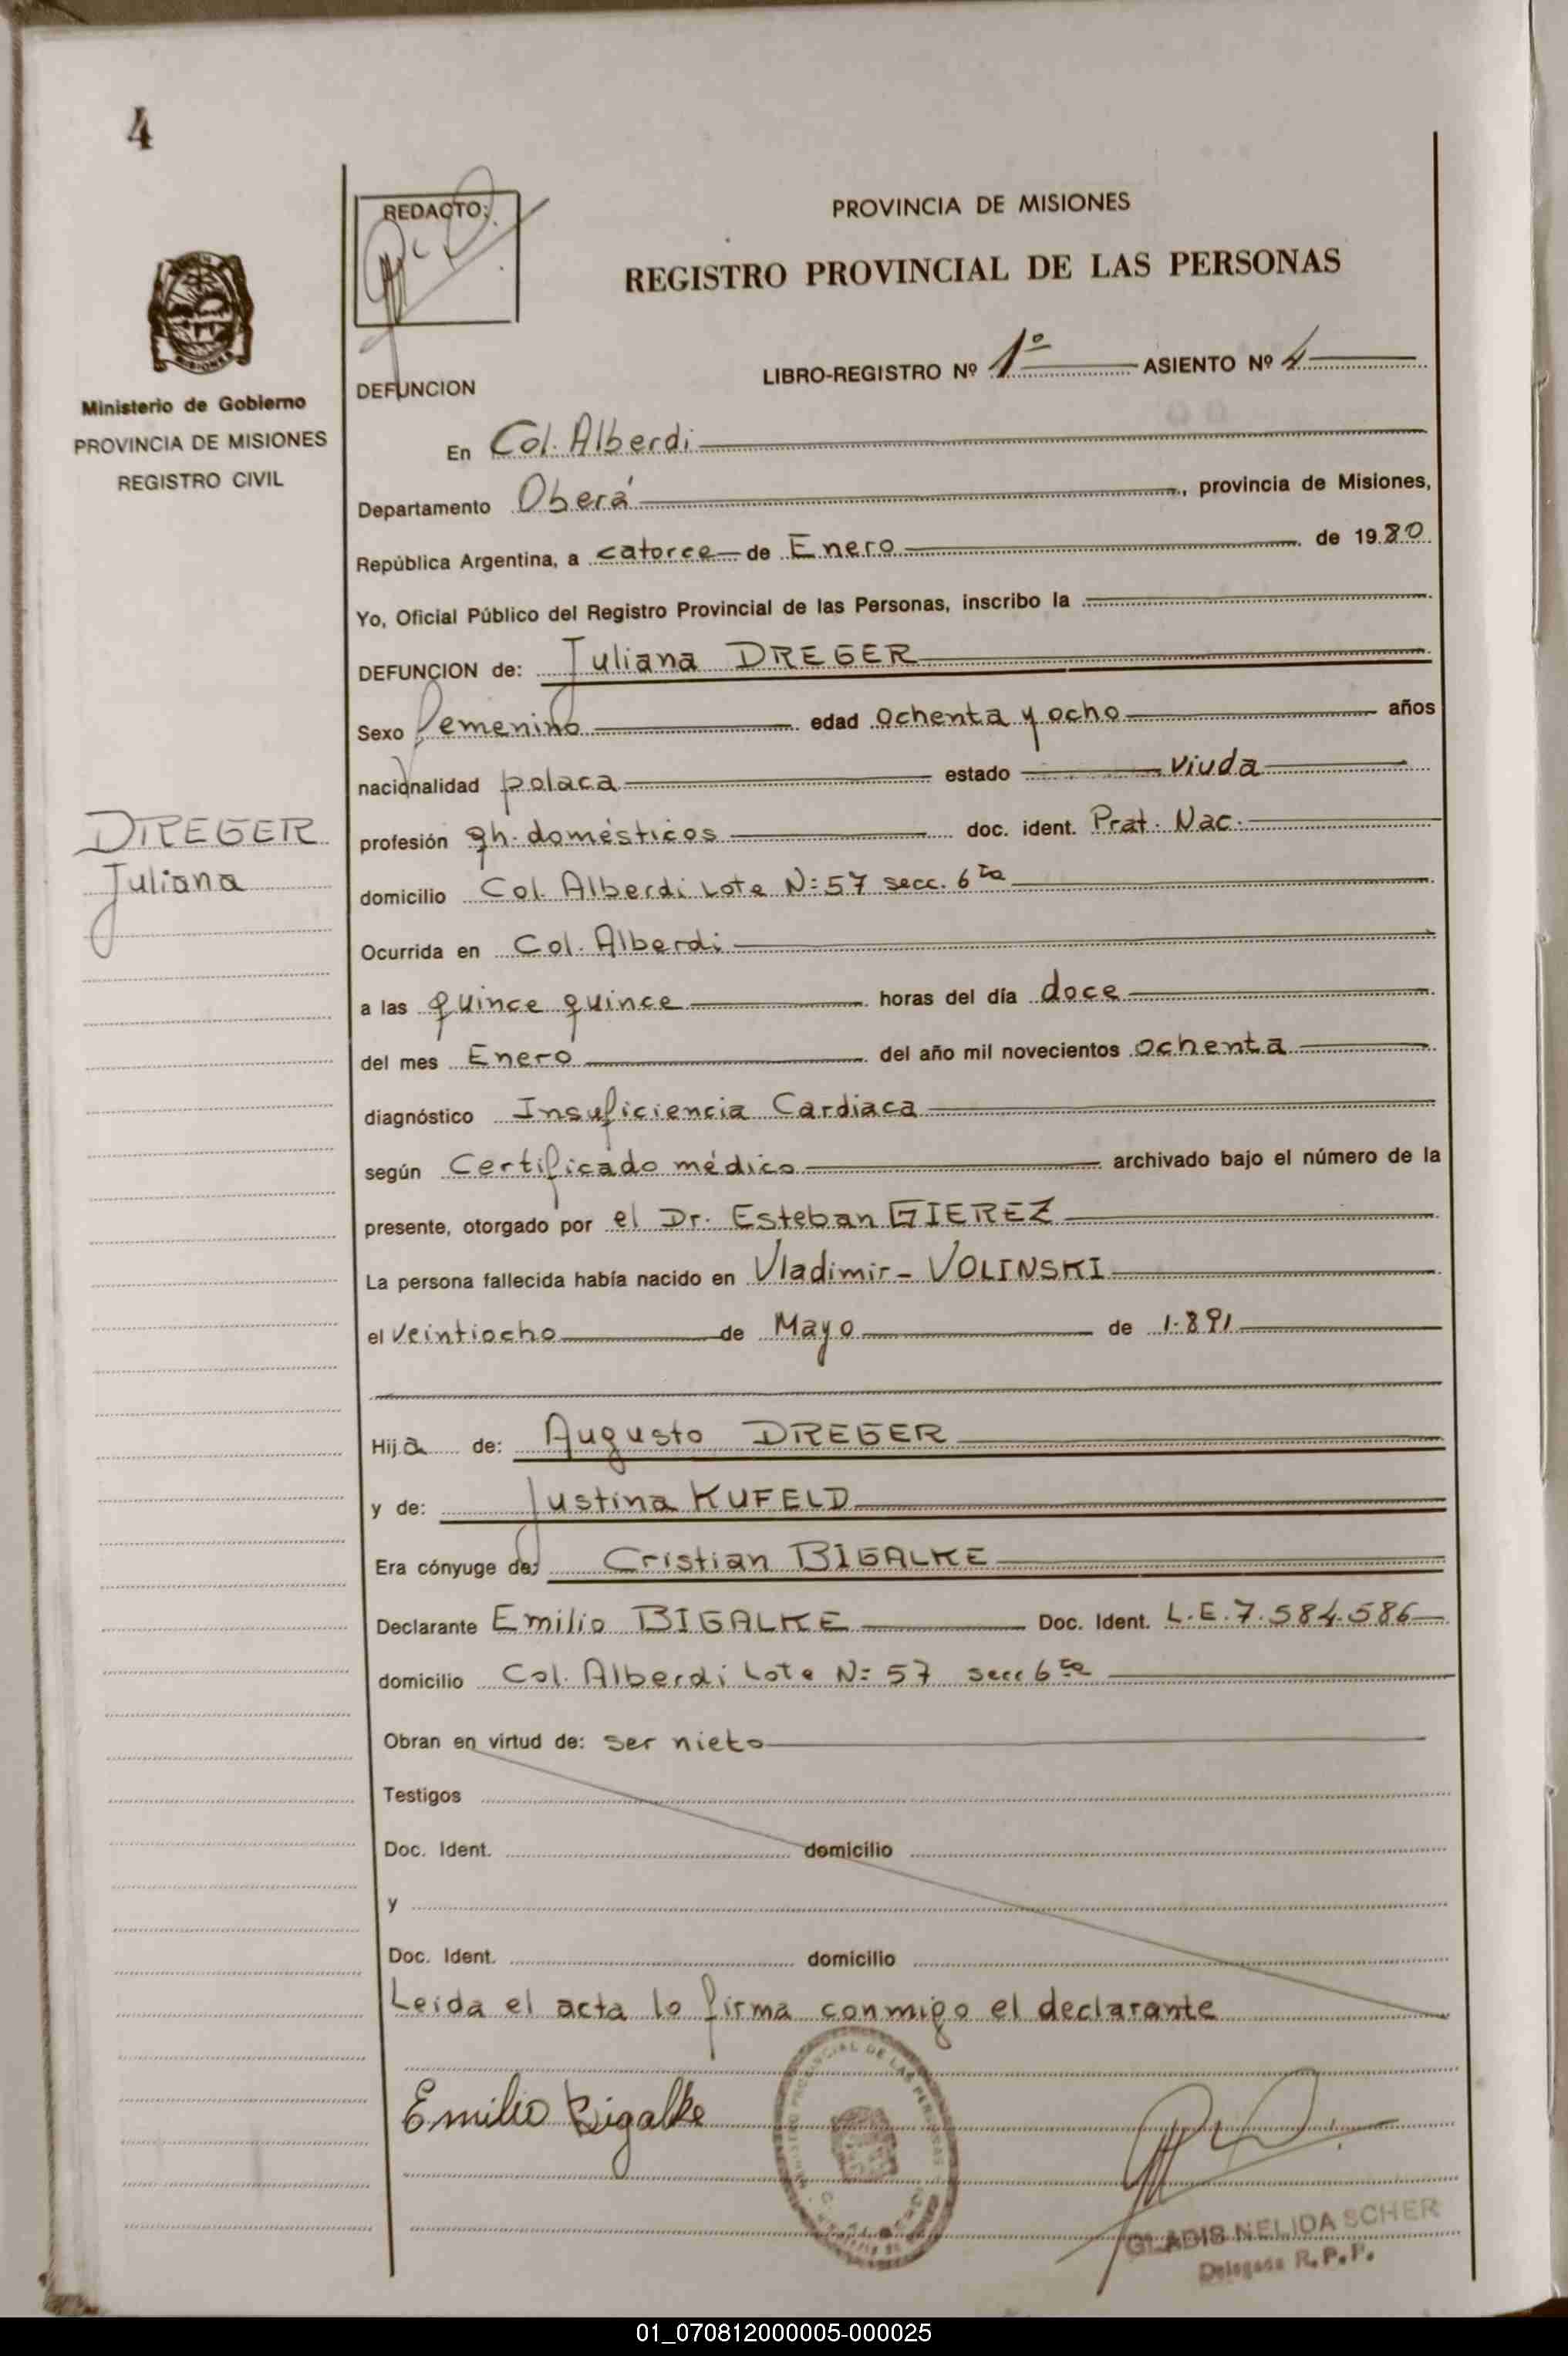 4
REDACTO:
PROVINCIA DE MISIONES
REGISTRO PROVINCIAL DE LAS PERSONAS
Ministerio de Gobierno
PROVINCIA DE MISIONES
REGISTRO CIVIL
LIBRO-REGISTRO Nº 1º ASIENTO Nº 4
DEFUNCION
En Col. Alberdi
Departamento Oberá, provincia de Misiones,
República Argentina, a catorce de Enero de 1980
Yo, Oficial Público del Registro Provincial de las Personas, inscribo la
DEFUNCION de: Juliana DREGER
Sexo femenino edad ochenta y ocho años
nacionalidad polaca estado viuda
DREGER
Juliana
profesión qh. domésticos doc. ident. Prat. Nac.
domicilio Col. Alberdi Lote Nº 57 secc. 6ta
Ocurrida en Col. Alberdi
a las quince quince horas del día doce
del mes Enero del año mil novecientos ochenta
diagnóstico Insuficiencia Cardiaca
según Certificado médico archivado bajo el número de la
presente, otorgado por el Dr. Esteban GIEREZ
La persona fallecida había nacido en Vladimir - VOLINSKI
el veintiocho de Mayo de 1.891
Hija de: Augusto DREGER
y de: Justina KUFELD
Era cónyuge de: Cristian BIGALKE
Declarante Emilio BIGALKE Doc. Ident. L.E. 7.584.586
domicilio Col. Alberdi Lote Nº 57 secc 6ta
Obran en virtud de: ser nieto
Testigos
Doc. Ident. domicilio
y
Doc. Ident. domicilio
Leida el acta lo firma conmigo el declarante
Emilio Bigalke
GLADIS NELIDA SCHER
Delegada R.P.P.
01_070812000005-000025